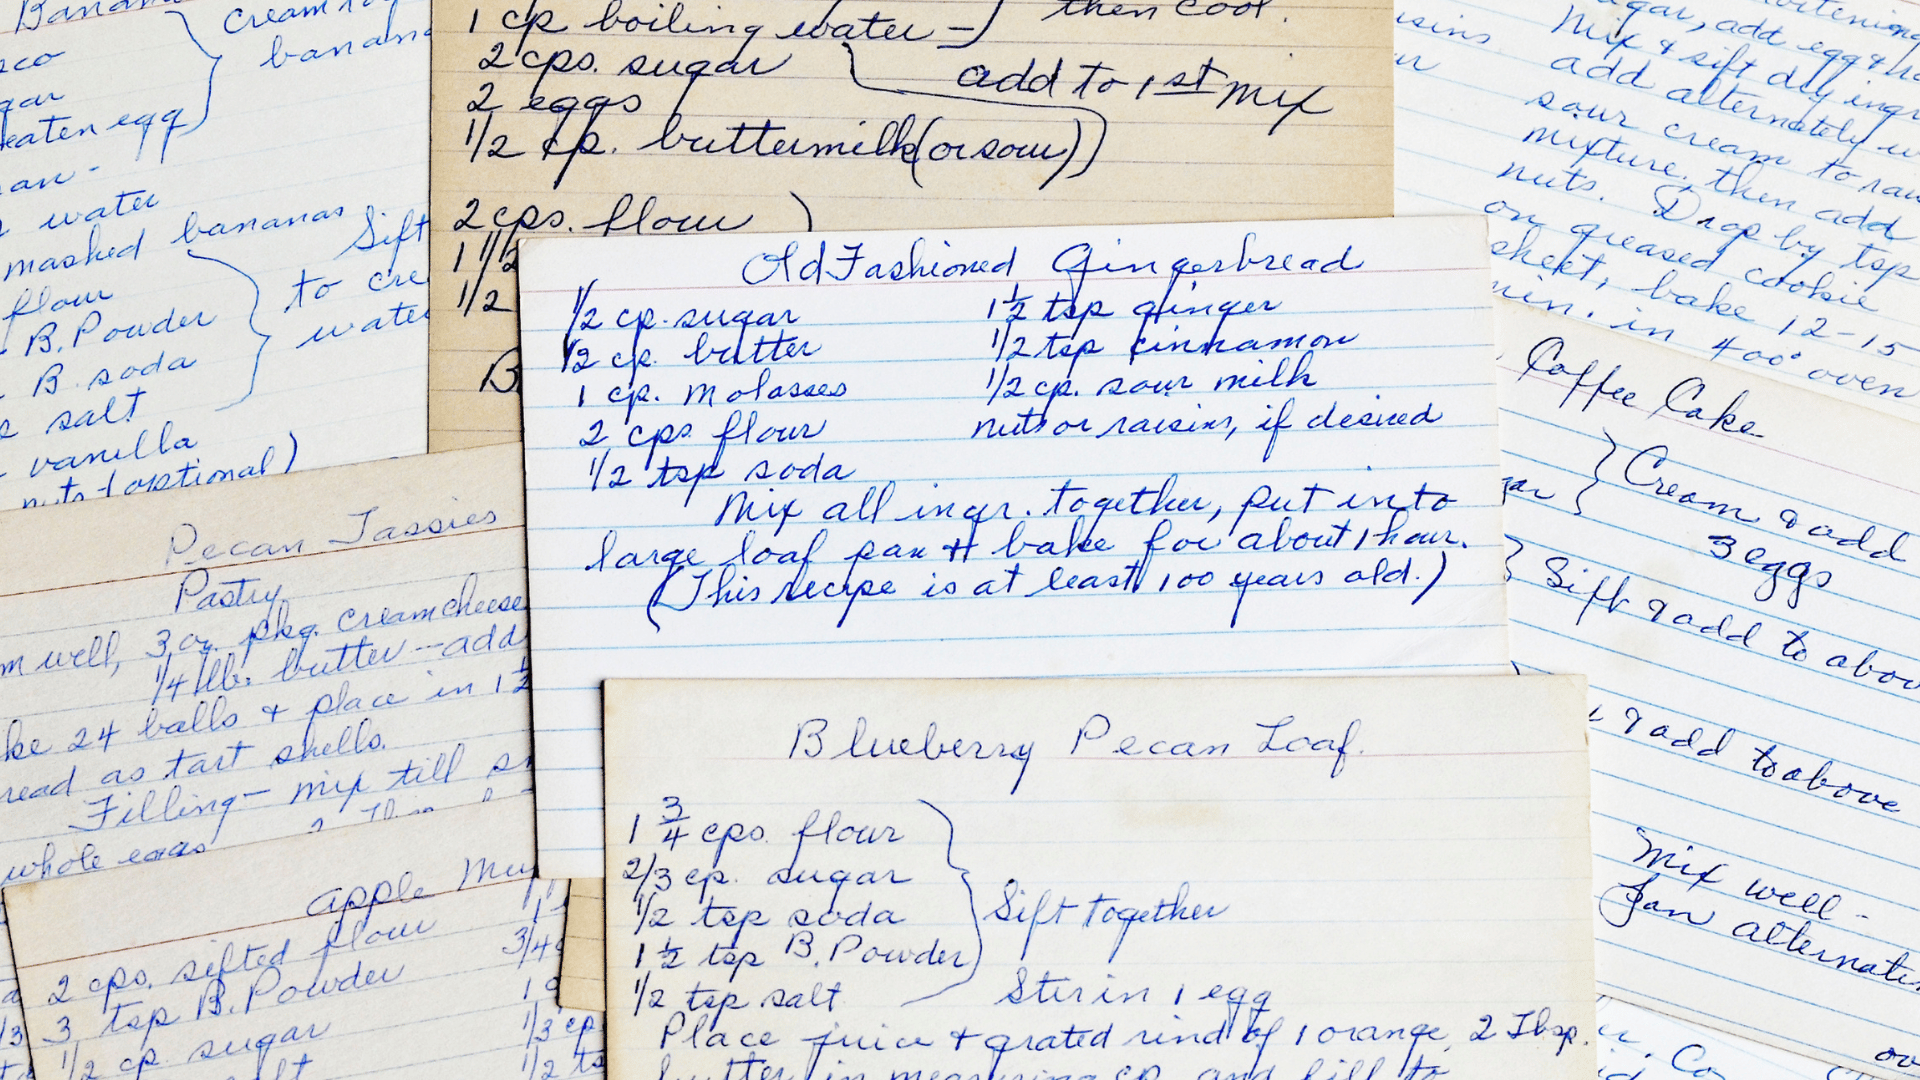 Banana
cream
sco
banana
gar
eaten egg
water
mashed bananas
Sift
flour
to cre
B. Powder
water
B. soda
salt
vanilla
nuts (optional)
then cool.
1 cp boiling water -
2 cps. sugar
add to 1st mix
2 eggs
1/2 cp. buttermilk (or sour)
2 cps. flour
1 1/2
1/2
B
gar, add egg &
Mix & sift dry ingr
add alternately w
sour cream to
mixture, then add
nuts. Drop by tsp
on greased cookie
sheet, bake 12-15
min. in 400° oven
Old Fashioned Gingerbread
1/2 cp. sugar
1 1/2 tsp ginger
1/2 cp. butter
1/2 tsp cinnamon
1 cp. molasses
1/2 cp. sour milk
2 cps flour
nuts or raisins, if desired
1/2 tsp soda
Mix all ingr. together, put into
large loaf pan & bake for about 1 hour.
(This recipe is at least 100 years old.)
Coffee Cake
Cream & add
3 eggs
Sift & add to abov
& add to above
Mix well -
alternate
Pecan Tassies
Pastry
m well, 3 oz. pkg. cream cheese
1/4 lb. butter - add
ke 24 balls & place in 1 1/2
read as tart shells.
Filling - mix till sm
whole eggs
Apple Mu
2 cps. sifted flour
3/4
3 tsp B. Powder
1/2 cp sugar
1/3 cp
lt
1/2 ts
Blueberry Pecan Loaf.
1 3/4 cps. flour
2/3 cp. sugar
1/2 tsp soda
Sift together
1 1/2 tsp B. Powder
1/2 tsp salt
Stir in 1 egg
Place juice & grated rind of 1 orange, 2 Tbsp.
butter in measuring cp. and fill to